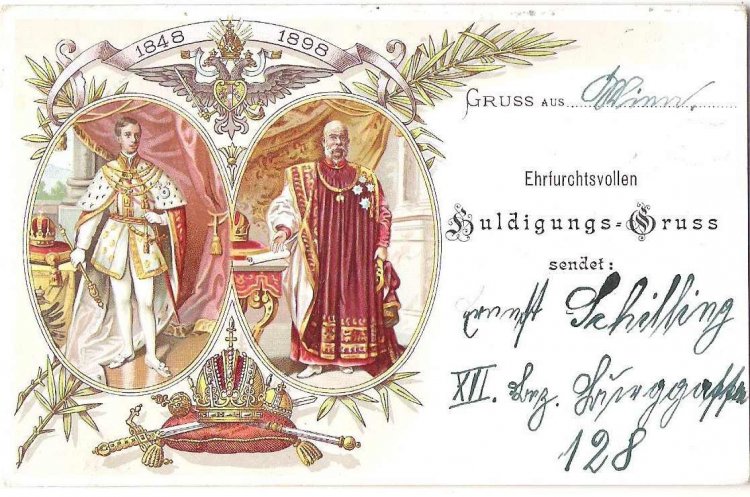 1848 1898
GRUSS AUS Wien.
Ehrfurchtsvollen
Huldigungs=Gruss
sendet:
Schilling
XII. Bez. Burggasse
128